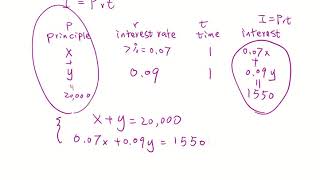 I = Prt
P r t I = Prt
principle interest rate time interest
x 7% = 0.07 1 0.07x
+ +
y 0.09 1 0.09y
|| ||
20,000 1550
x + y = 20,000
0.07x + 0.09y = 1550